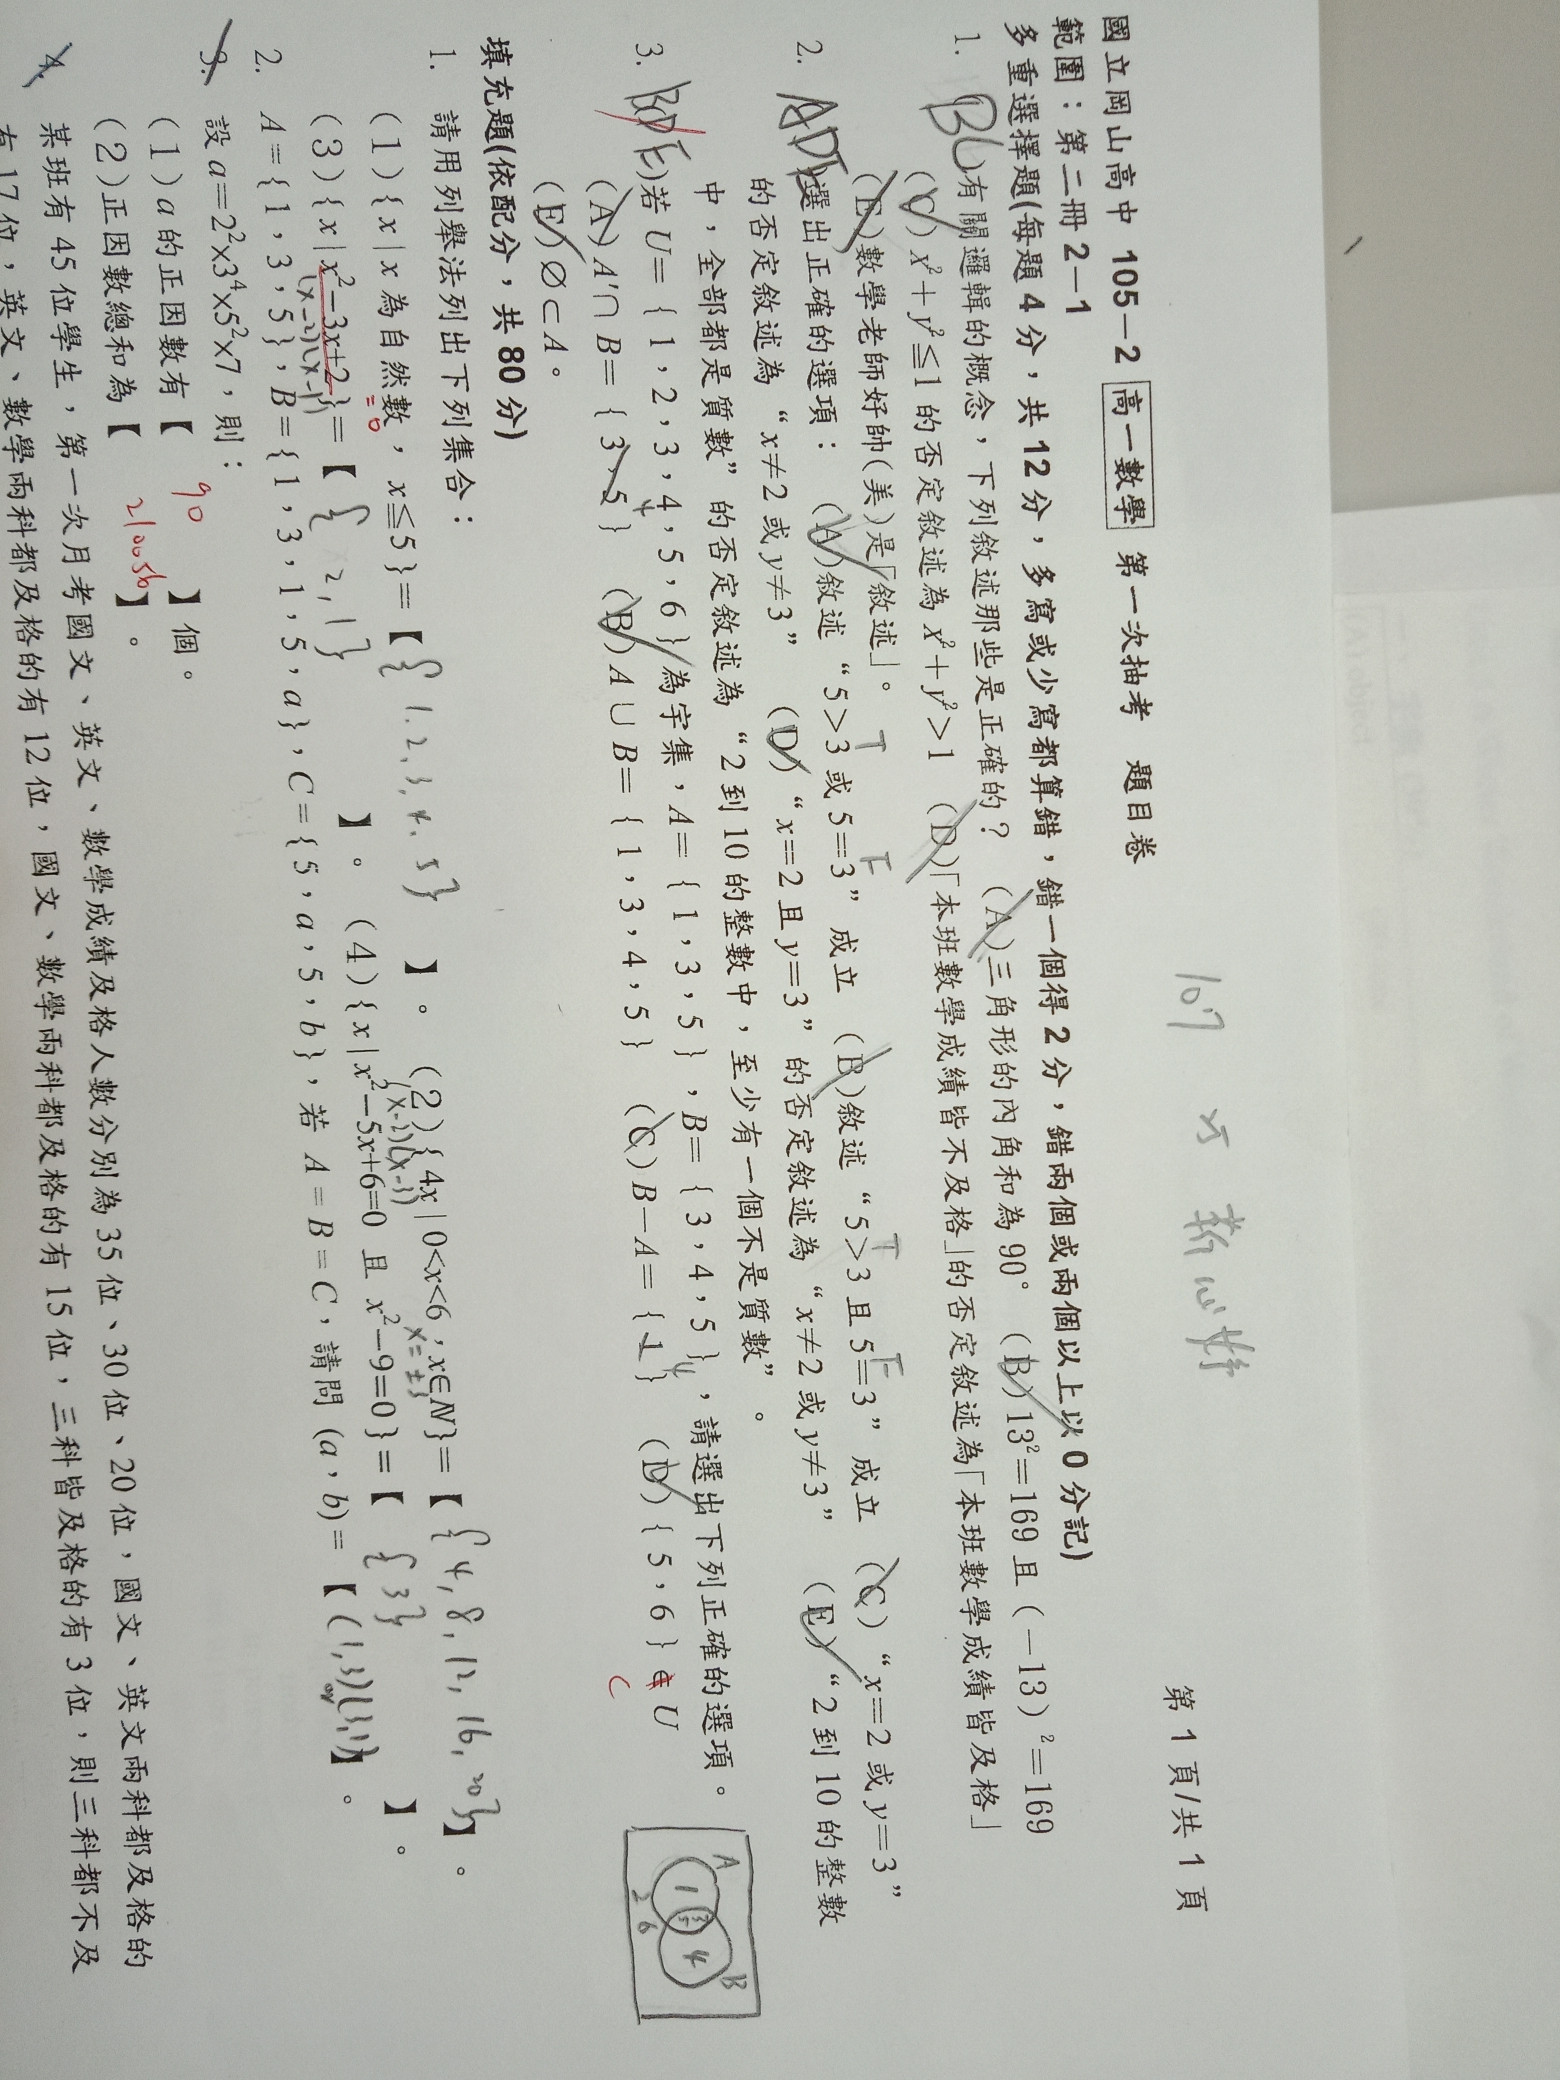 第 1 頁/共 1 頁
107 25
國立岡山高中 105－2 高一數學 第一次抽考 題目卷
範圍：第二冊 2－1
多重選擇題(每題 4 分，共 12 分，多寫或少寫都算錯，錯一個得 2 分，錯兩個或兩個以上以 0 分記)
1. BC 有關邏輯的概念，下列敘述那些是正確的？ (A)三角形的內角和為 90° (B)13²＝169 且（－13）²＝169
(C) x²＋y²≤1 的否定敘述為 x²＋y²＞1 (D)「本班數學成績皆不及格」的否定敘述為「本班數學成績皆及格」
(E)數學老師好帥(美)是「敘述」。
T F T F
2. ADE 選出正確的選項： (A)敘述 “5＞3 或 5＝3” 成立 (B)敘述 “5＞3 且 5＝3” 成立 (C) “x＝2 或 y＝3”
的否定敘述為 “x≠2 或 y≠3” (D) “x＝2 且 y＝3” 的否定敘述為 “x≠2 或 y≠3” (E) “2 到 10 的整數
中，全部都是質數” 的否定敘述為 “2 到 10 的整數中，至少有一個不是質數”。
3. BDE 若 U＝{ 1，2，3，4，5，6 }為宇集，A＝{ 1，3，5 }，B＝{ 3，4，5 }，請選出下列正確的選項。
(A) A'∩ B＝{ 3，5 } 4 (B) A ∪ B＝{ 1，3，4，5 } (C) B－A＝{ 1 } 4 (D) { 5，6 } ∈ U ⊂
(E) ∅ ⊂ A。
A B
1 3 5 4
2 6
填充題(依配分，共 80 分)
1. 請用列舉法列出下列集合：
(1) { x | x 為自然數，x≤5 }＝【 { 1, 2, 3, 4, 5 } 】。 (2) { 4x | 0<x<6，x∈N }＝【 { 4, 8, 12, 16, 20 } 】。
=0 (x-2)(x-3) x=±3
(3) { x | x²－3x+2 }＝【 { 2, 1 } 】。 (4) { x | x²－5x+6＝0 且 x²－9＝0 }＝【 { 3 } 】。
(x-2)(x-1)
2. A＝{ 1，3，5 }，B＝{ 1，3，1，5，a }，C＝{ 5，a，5，b }，若 A＝B＝C，請問 (a，b)＝【 (1,3) or (3,1) 】。
3. 設 a＝2²x3⁴x5²x7，則：
(1) a 的正因數有【 90 】個。
(2) 正因數總和為【 210056 】。
4. 某班有 45 位學生，第一次月考國文、英文、數學成績及格人數分別為 35 位、30 位、20 位，國文、英文兩科都及格的
有 17 位，英文、數學兩科都及格的有 12 位，國文、數學兩科都及格的有 15 位，三科皆及格的有 3 位，則三科都不及